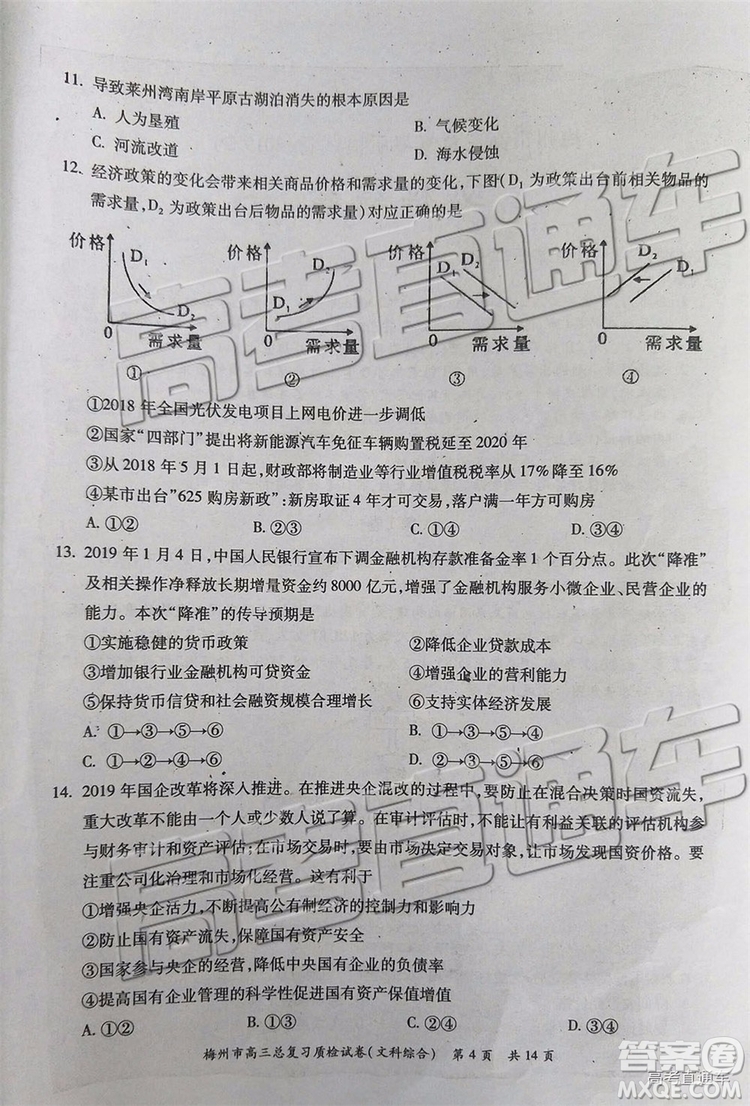 11. 导致莱州湾南岸平原古湖泊消失的根本原因是
A. 人为垦殖 B. 气候变化
C. 河流改道 D. 海水侵蚀
12. 经济政策的变化会带来相关商品价格和需求量的变化，下图（D₁ 为政策出台前相关物品的
需求量，D₂ 为政策出台后物品的需求量）对应正确的是
价格 D₁ D₂ 0 需求量 ①
价格 D₂ D₁ 0 需求量 ②
价格 D₁ D₂ 0 需求量 ③
价格 D₂ D₁ 0 需求量 ④
①2018 年全国光伏发电项目上网电价进一步调低
②国家“四部门”提出将新能源汽车免征车辆购置税延至 2020 年
③从 2018 年 5 月 1 日起，财政部将制造业等行业增值税税率从 17% 降至 16%
④某市出台“625 购房新政”：新房取证 4 年才可交易，落户满一年方可购房
A. ①② B. ②③ C. ①④ D. ③④
13. 2019 年 1 月 4 日，中国人民银行宣布下调金融机构存款准备金率 1 个百分点。此次“降准”
及相关操作净释放长期增量资金约 8000 亿元，增强了金融机构服务小微企业、民营企业的
能力。本次“降准”的传导预期是
①实施稳健的货币政策 ②降低企业贷款成本
③增加银行业金融机构可贷资金 ④增强企业的营利能力
⑤保持货币信贷和社会融资规模合理增长 ⑥支持实体经济发展
A. ①→③→⑤→⑥ B. ①→③→②→④
C. ①→②→⑤→⑥ D. ①→②→③→⑥
14. 2019 年国企改革将深入推进。在推进央企混改的过程中，要防止在混合决策时国资流失，
重大改革不能由一个人或少数人说了算。在审计评估时，不能让有利益关联的评估机构参
与财务审计和资产评估：在市场交易时，要由市场决定交易对象，让市场发现国资价格。要
注重公司化治理和市场化经营。这有利于
①增强央企活力，不断提高公有制经济的控制力和影响力
②防止国有资产流失，保障国有资产安全
③国家参与央企的经营，降低中央国有企业的负债率
④提高国有企业管理的科学性促进国有资产保值增值
A. ①② B. ①③ C. ②④ D. ③④
梅州市高三总复习质检试卷（文科综合） 第 4 页 共 14 页
高考直通车
答案圈
高考直通车
MXQE.COM